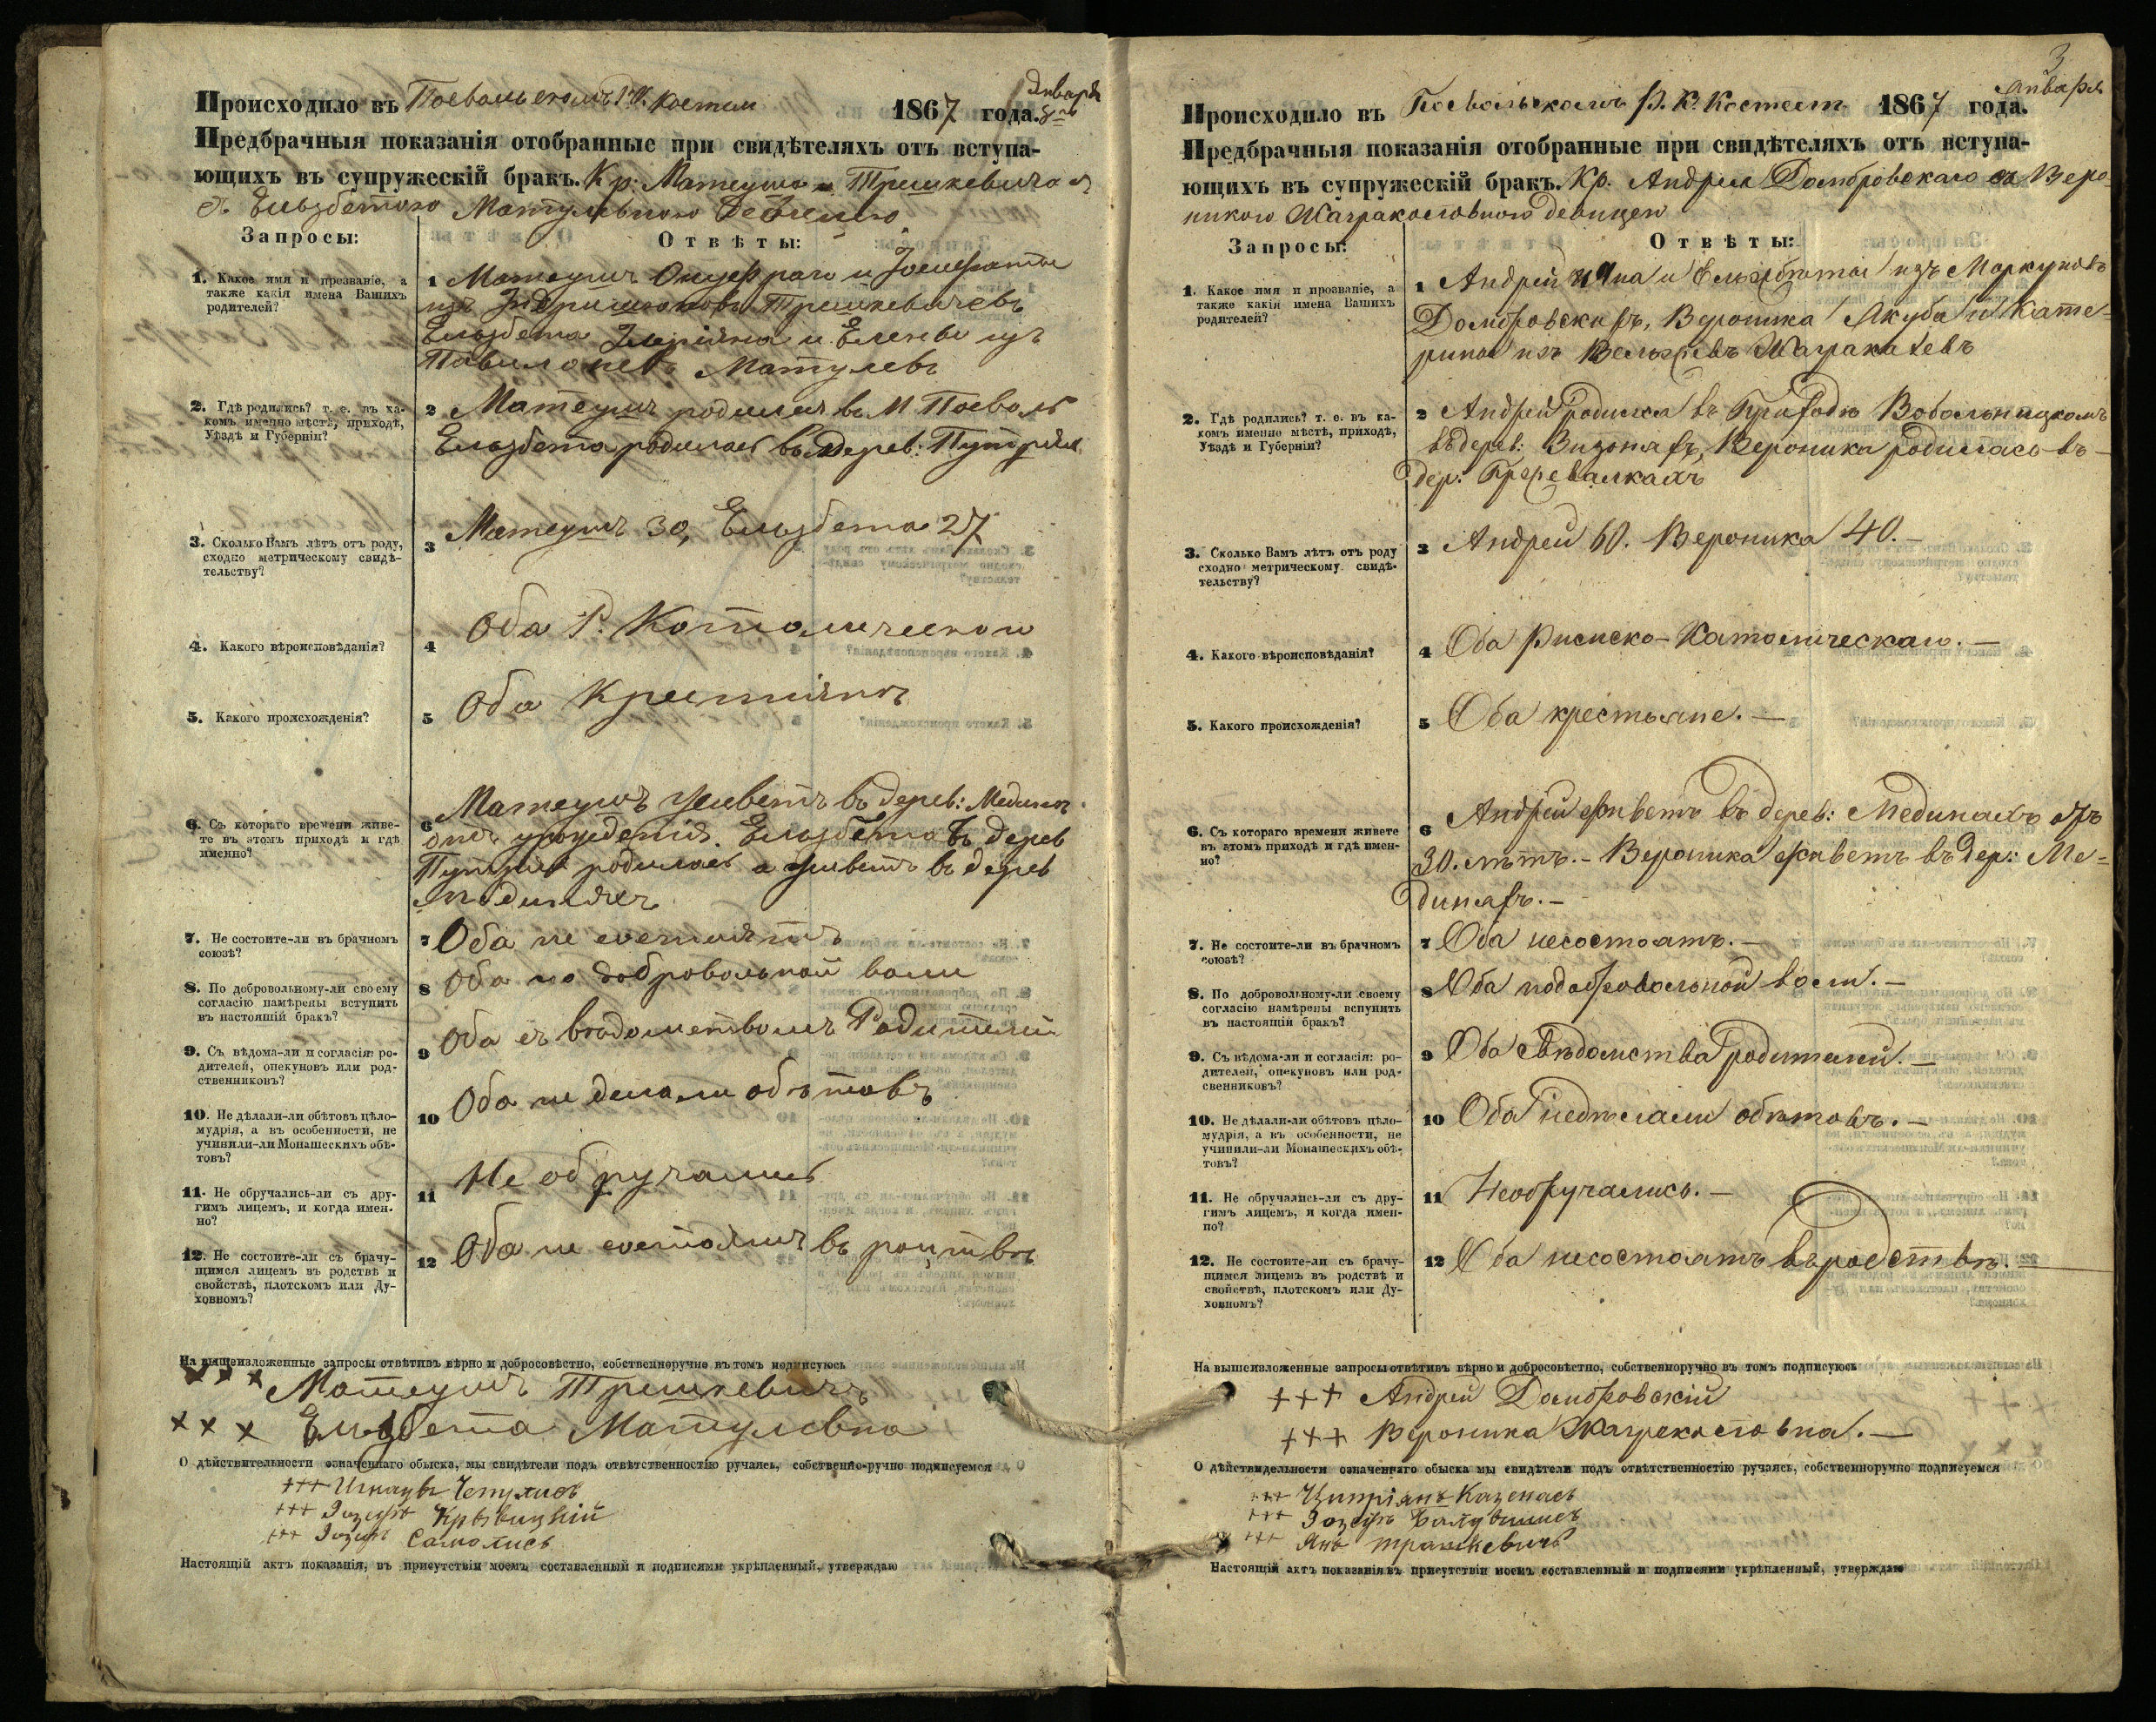 Января
Происходило въ Посвольскомъ Р. К. Костели 1867 года. 8го
Предбрачныя показанія отобранные при свидѣтеляхъ отъ вступа-
ющихъ въ супружескій бракъ. Кр: Матеуша Трешкевича
съ Ельзбетою Матулевною девицею
Запросы: Отвѣты:
1. Какое имя и прозваніе, а
также какія имена Вашихъ
родителей?
1 Матеушъ Онуфраго и Іозефаты
изъ Трешкевичевъ
Ельзбета и Елены изъ
Матулевъ
2. Гдѣ родились? т. е. въ ка-
комъ именно мѣстѣ, приходѣ,
Уѣздѣ и Губерніи?
2 Матеушъ родился въ М. Посволь
Ельзбета родилась въ дерев:
3. Сколько Вамъ лѣтъ отъ роду,
сходно метрическому свидѣ-
тельству?
3 Матеушъ 30, Ельзбета 27
4. Какого вѣроисповѣданія?
4 Оба Р. Католическаго
5. Какого происхожденія?
5 Оба Крестіянъ
6. Съ котораго времени живе-
те въ этомъ приходѣ и гдѣ
именно?
6 Матеушъ живетъ въ дерев:
отъ урождения. Ельзбета въ дерев
родилась а живетъ въ дерев
7. Не состоите-ли въ брачномъ
союзѣ?
7 Оба не состоятъ
8. По добровольному-ли своему
согласію намѣрены вступить
въ настоящій бракъ?
8 Оба по добровольной воли
9. Съ вѣдома-ли и согласія: ро-
дителей, опекуновъ или род-
ственниковъ?
9 Оба съ вѣдомствомъ Родителей
10. Не дѣлали-ли обѣтовъ цѣло-
мудрія, а въ особенности, не
учинили-ли Монашескихъ обѣ-
товъ?
10 Оба не делали обѣтовъ
11. Не обручались-ли съ дру-
гимъ лицемъ, и когда имен-
но?
11 Не обручались
12. Не состоите-ли съ брачу-
щимся лицемъ въ родствѣ и
свойствѣ, плотскомъ или Ду-
ховномъ?
12 Оба не состоятъ въ роцтвѣ
На вышеизложенные запросы отвѣтивъ вѣрно и добросовѣстно, собственноручно въ томъ подписуюсь
××× Матеушъ Трешкевичъ
××× Ельзбета Матулевна
О дѣйствительности означеннаго обыска, мы свидѣтели подъ отвѣтственностію ручаясь, собственно-ручно подписуемся
+++ Игнацы
+++ Іозефъ Крывицкій
+++ Іозефъ Самолисъ
Настоящій актъ показанія, въ присутствіи моемъ составленный и подписями укрѣпленный, утверждаю
3
Января
Происходило въ Посвольскомъ Р. К. Костелѣ 1867 года.
Предбрачныя показанія отобранные при свидѣтеляхъ отъ вступа-
ющихъ въ супружескій бракъ. Кр. Андрея Домбровскаго съ Веро-
никою девицею
Запросы: Отвѣты:
1. Какое имя и прозваніе, а
также какія имена Вашихъ
родителей?
1 Андрей Яна и Ельжбеты изъ Маркуновъ
Домбровскихъ, Вероника Якуба и Кате-
рины изъ
2. Гдѣ родились? т. е. въ ка-
комъ именно мѣстѣ, приходѣ,
Уѣздѣ и Губерніи?
2 Андрей родился въ Приходѣ Вобольницкомъ
въ дерев: Вероника родилась въ
дер:
3. Сколько Вамъ лѣтъ отъ роду
сходно метрическому свидѣ-
тельству?
3 Андрей 60. Вероника 40. —
4. Какого вѣроисповѣданія?
4 Оба Римско-Католическаго. —
5. Какого происхожденія?
5 Оба крестьяне. —
6. Съ котораго времени живете
въ этомъ приходѣ и гдѣ имен-
но?
6 Андрей живетъ въ дерев: Мединахъ отъ
30. лѣтъ. — Вероника живетъ въ дер: Ме-
динахъ. —
7. Не состоите-ли въ брачномъ
союзѣ?
7 Оба несостоятъ. —
8. По добровольному-ли своему
согласію намѣрены вспунить
въ настоящій бракъ?
8 Оба подобровольной воли. —
9. Съ вѣдома-ли и согласія: ро-
дителей, опекуновъ или род-
свенниковъ?
9 Оба съ вѣдомства родителей. —
10. Не дѣлали-ли обѣтовъ цѣло-
мудрія, а въ особенности, не
учинили-ли Монашескихъ обѣ-
товъ?
10 Оба недѣлали обѣтовъ. —
11. Не обручались-ли съ дру-
гимъ лицемъ, и когда имен-
но?
11 Необручались. —
12. Не состоите-ли съ брачу-
щимся лицемъ въ родствѣ и
свойствѣ, плотскомъ или Ду-
ховномъ?
12 Оба несостоятъ въ родствѣ. —
На вышеизложенные запросы отвѣтивъ вѣрно и добросовѣстно, собственноручно въ томъ подписуюсь
+++ Андрей Домбровскій
+++ Вероника
О дѣйствидельности означеннаго обыска мы свидѣтели подъ отвѣтственностію ручаясь, собственноручно подписуемся
+++ Ципріянъ Казенасъ
+++ Іозефъ
+++ Янъ
Настоящій актъ показанія въ присутствіи моемъ составленный и подписями укрѣпленный, утверждаю